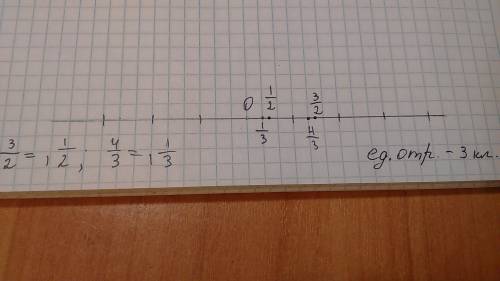 0 1/2 3/2
1/3 4/3
3/2 = 1 1/2; 4/3 = 1 1/3
ед. отр. - 3 кл.